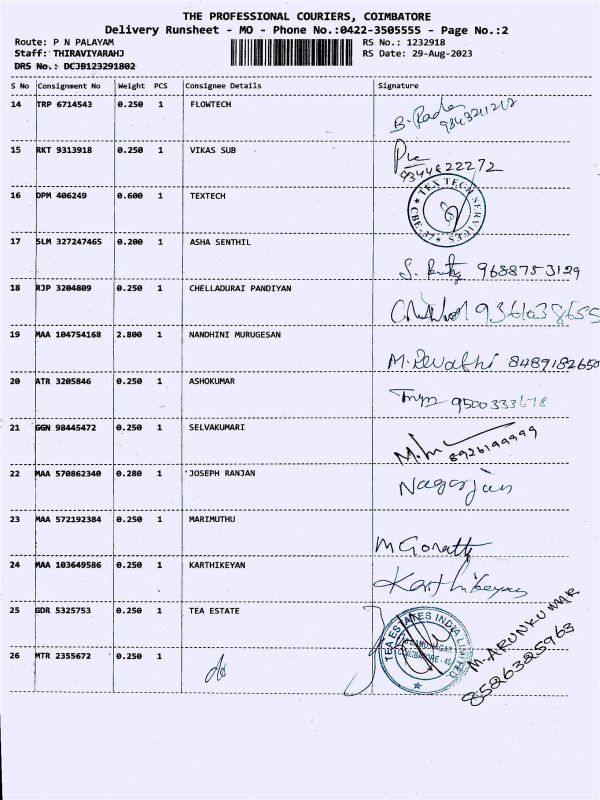 THE PROFESSIONAL COURIERS, COIMBATORE
Delivery Runsheet - MO - Phone No.:0422-3505555 - Page No.:2
Route: P N PALAYAM RS No.: 1232918
Staff: THIRAVIYARAHJ RS Date: 29-Aug-2023
DRS No.: DCJB123291802
S No Consignment No Weight PCS Consignee Details Signature
14 TRP 6714543 0.250 1 FLOWTECH
15 RKT 9313918 0.250 1 VIKAS SUB
16 DPM 406249 0.600 1 TEXTECH TEX TECH SERVICES CBE-37
17 SLM 327247465 0.200 1 ASHA SENTHIL 9688753129
18 RJP 3204809 0.250 1 CHELLADURAI PANDIYAN 9361038655
19 MAA 104754168 2.800 1 NANDHINI MURUGESAN M.Revathi 8489182650
20 ATR 3205846 0.250 1 ASHOKUMAR 9500333678
21 GGN 98445472 0.250 1 SELVAKUMARI 8926199999
22 MAA 570862340 0.280 1 JOSEPH RANJAN Nagarjan
23 MAA 572192384 0.250 1 MARIMUTHU
24 MAA 103649586 0.250 1 KARTHIKEYAN Karthikeyan
25 GDR 5325753 0.250 1 TEA ESTATE TEA ESTATES INDIA LIMITED COIMBATORE M.ARUNKUMAR 8526325963
26 MTR 2355672 0.250 1